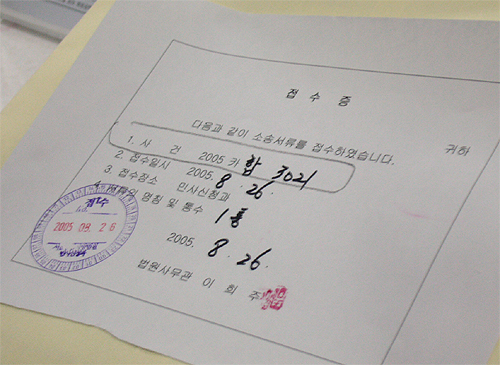 접 수 증
귀하
다음과 같이 소송서류를 접수하였습니다.
1. 사 건 2005 카합 3021
2. 접수일시 2005. 8. 26.
3. 접수장소 민사신청과
명칭 및 통수 1통
2005. 8. 26.
법원사무관 이 희 주
접수
2005 08. 26